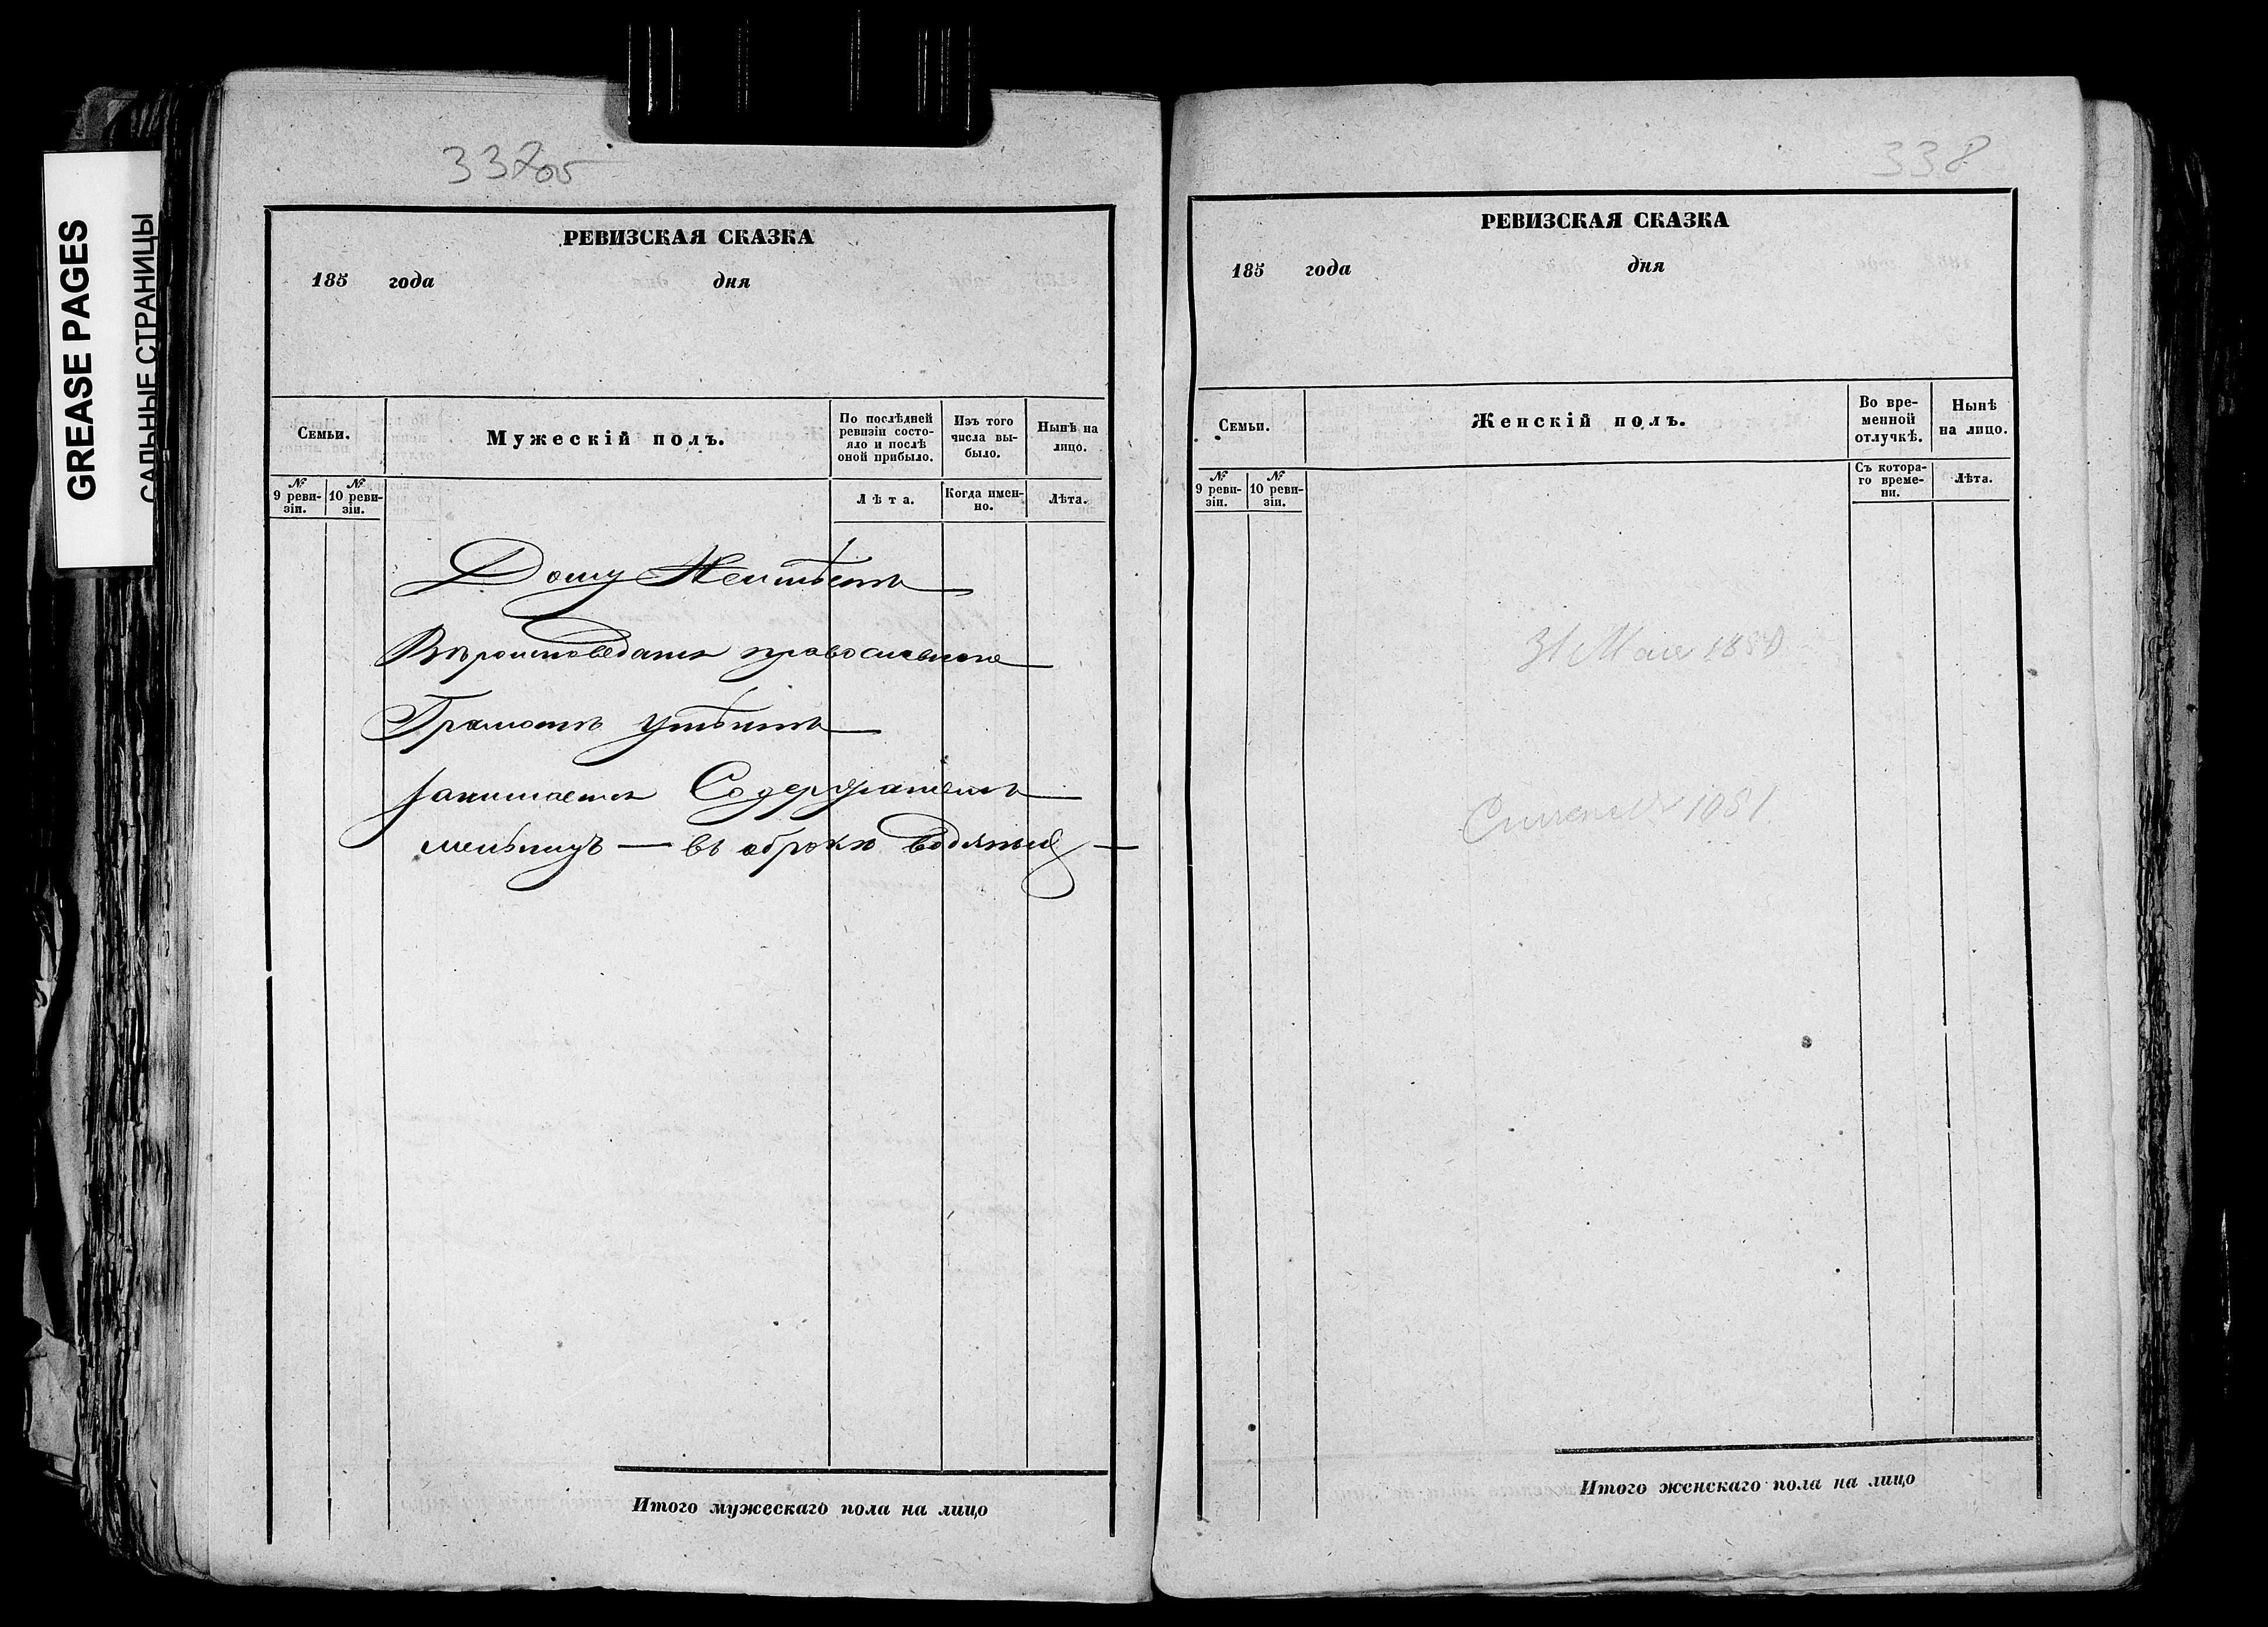 GREASE PAGES
САЛЬНЫЕ СТРАНИЦЫ
337об
РЕВИЗСКАЯ СКАЗКА
185 года дня
Семьи.
Мужескій полъ.
По послѣдней ревизіи состояло и послѣ оной прибыло.
Изъ того числа выбыло.
Нынѣ на лицо.
№ 9 ревизіи.
№ 10 ревизіи.
Лѣта.
Когда именно.
Лѣта.
Дому Неимѣетъ
Вѣроисповеданія православнаго
Грамотѣ умѣетъ
занимается Содержаніемъ
мельницъ — въ аброкѣ водяныя —
Итого мужескаго пола на лицо
338
РЕВИЗСКАЯ СКАЗКА
185 года дня
Семьи.
Женскій полъ.
Во временной отлучкѣ.
Нынѣ на лицо.
№ 9 ревизіи.
№ 10 ревизіи.
Съ котораго времени.
Лѣта.
31 Мая 1850
1051
Итого женскаго пола на лицо